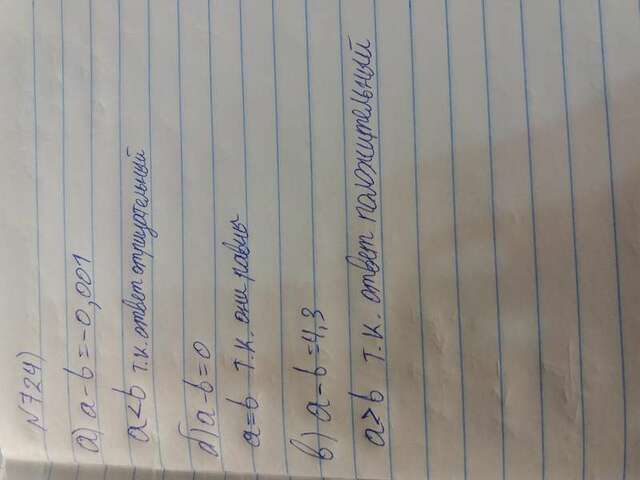 №724)
а) a-b=-0,001
a<b т.к. ответ отрицательный
б) a-b=0
a=b т.к. они равны
в) a-b=4,3
a>b т.к. ответ положительный